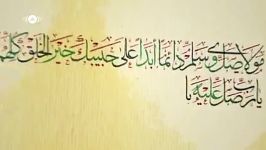 مولاي صل وسلم دائما أبدا على حبيبك خير الخلق كلهم
يا رب صل عليه